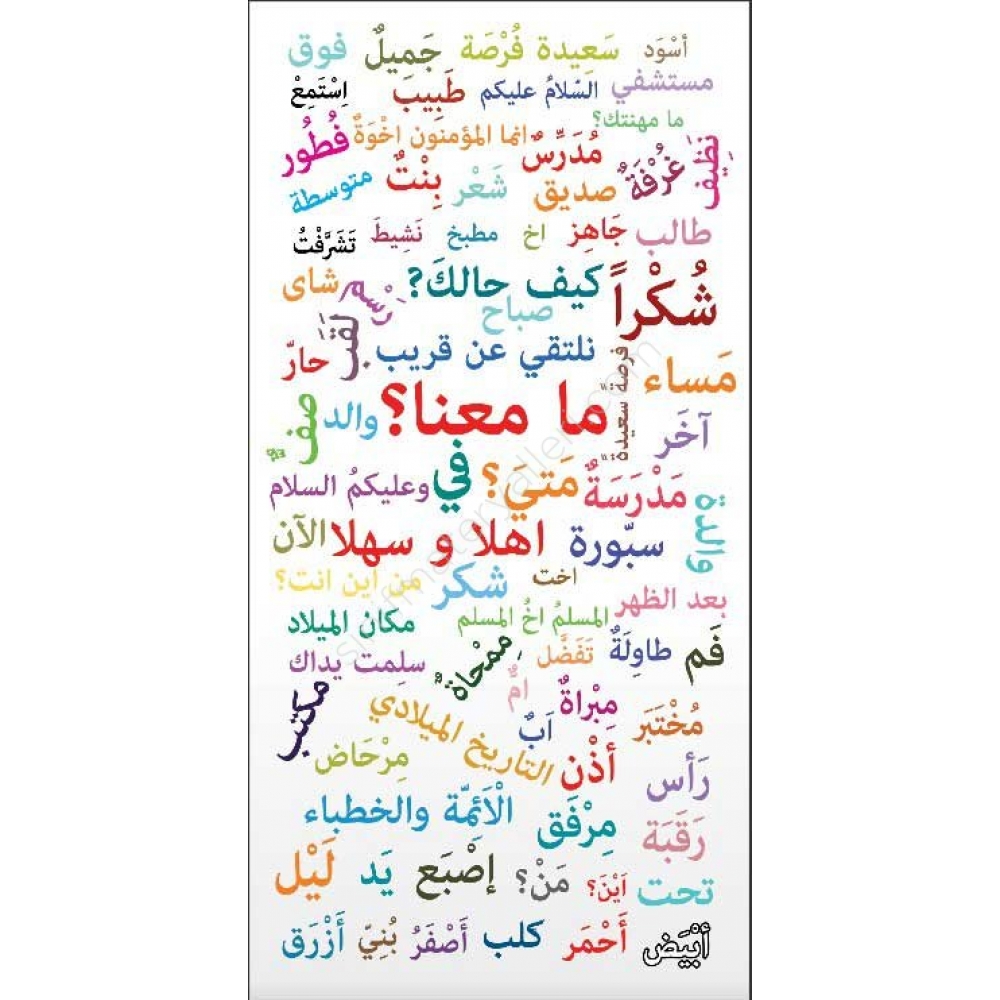 أسْوَد سَعِيدة فُرْصَة جَمِيلٌ فوق
مستشفي السّلامُ عليكم طَبِيب اِسْتَمِعْ
ما مهنتك؟
انما المؤمنون اخْوَةٌ فُطُور
نَظِيف غُرْفَةٌ مُدَرِّسٌ بِنْتٌ
صديق شَعْر متوسطة
طالب جَاهِز اخ مطبخ نَشِيطَ تَشَرَّفْتُ
شُكْراً كيف حالكَ? رَسْم شاى
صباح
نلتقي عن قريب لَقَب حارّ
مَساء فرصة سعيدة
ما معنا؟ والد صفٌّ
آخَر
مَدْرَسَةٌ مَتيَ؟ في وعليكمُ السلام
والدة
سبّورة اهلا و سهلا الآن
اخت شكر من اين انت؟
بعد الظهر المسلمُ اخُ المسلم مكان الميلاد
فَم طاوِلَةٌ تَفَضَّل مِمْحاةٌ سلِمت يداك
مُخْتَبَر مِبْراةٌ امٌّ مكتب
اَبٌ التاريخ الميلادي
رَأس أذْن مِرْحَاض
رَقَبَة مِرْفَق الْاَئِمّة والخطباء
تحت اَيْنَ؟ مَنْ؟ إصْبَع يَد لَيْل
أبْيَض أَحْمَر كلب أَصْفَرُ بُنِيّ أَزْرَق
sinifmateryalleri.com